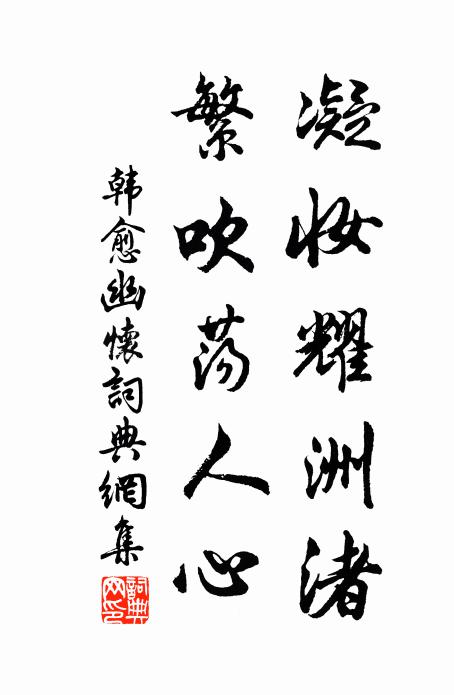 凝妝耀洲渚
繁吹荡人心
韩愈幽懷詞典網集
詞典网印